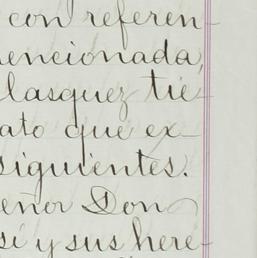 con referen-
encionada,
lasquez tie-
ato que ex-
siguientes.
eñor Don
sí y sus here-